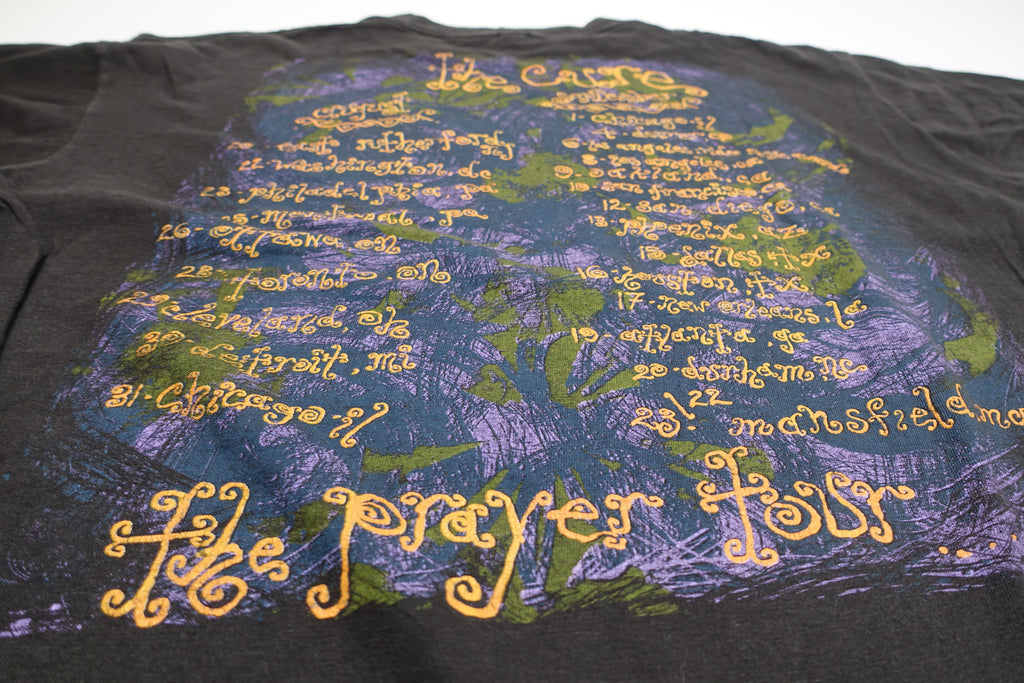 the cure
august
east rutherford nj
22. washington, dc
23. philadelphia pa
25. montreal, pq
26. ottawa on
28. toronto on
29. cleveland, oh
30. detroit, mi
31. chicago il
september
1. chicago il
4. denver
6. los angeles
8. los angeles ca
9. oakland ca
10. san francisco
12. san diego, ca
13. phoenix, az
15. dallas tx
16. houston tx
17. new orleans, la
19. atlanta, ga
20. durham, nc
22
23. mansfield, ma
the prayer tour